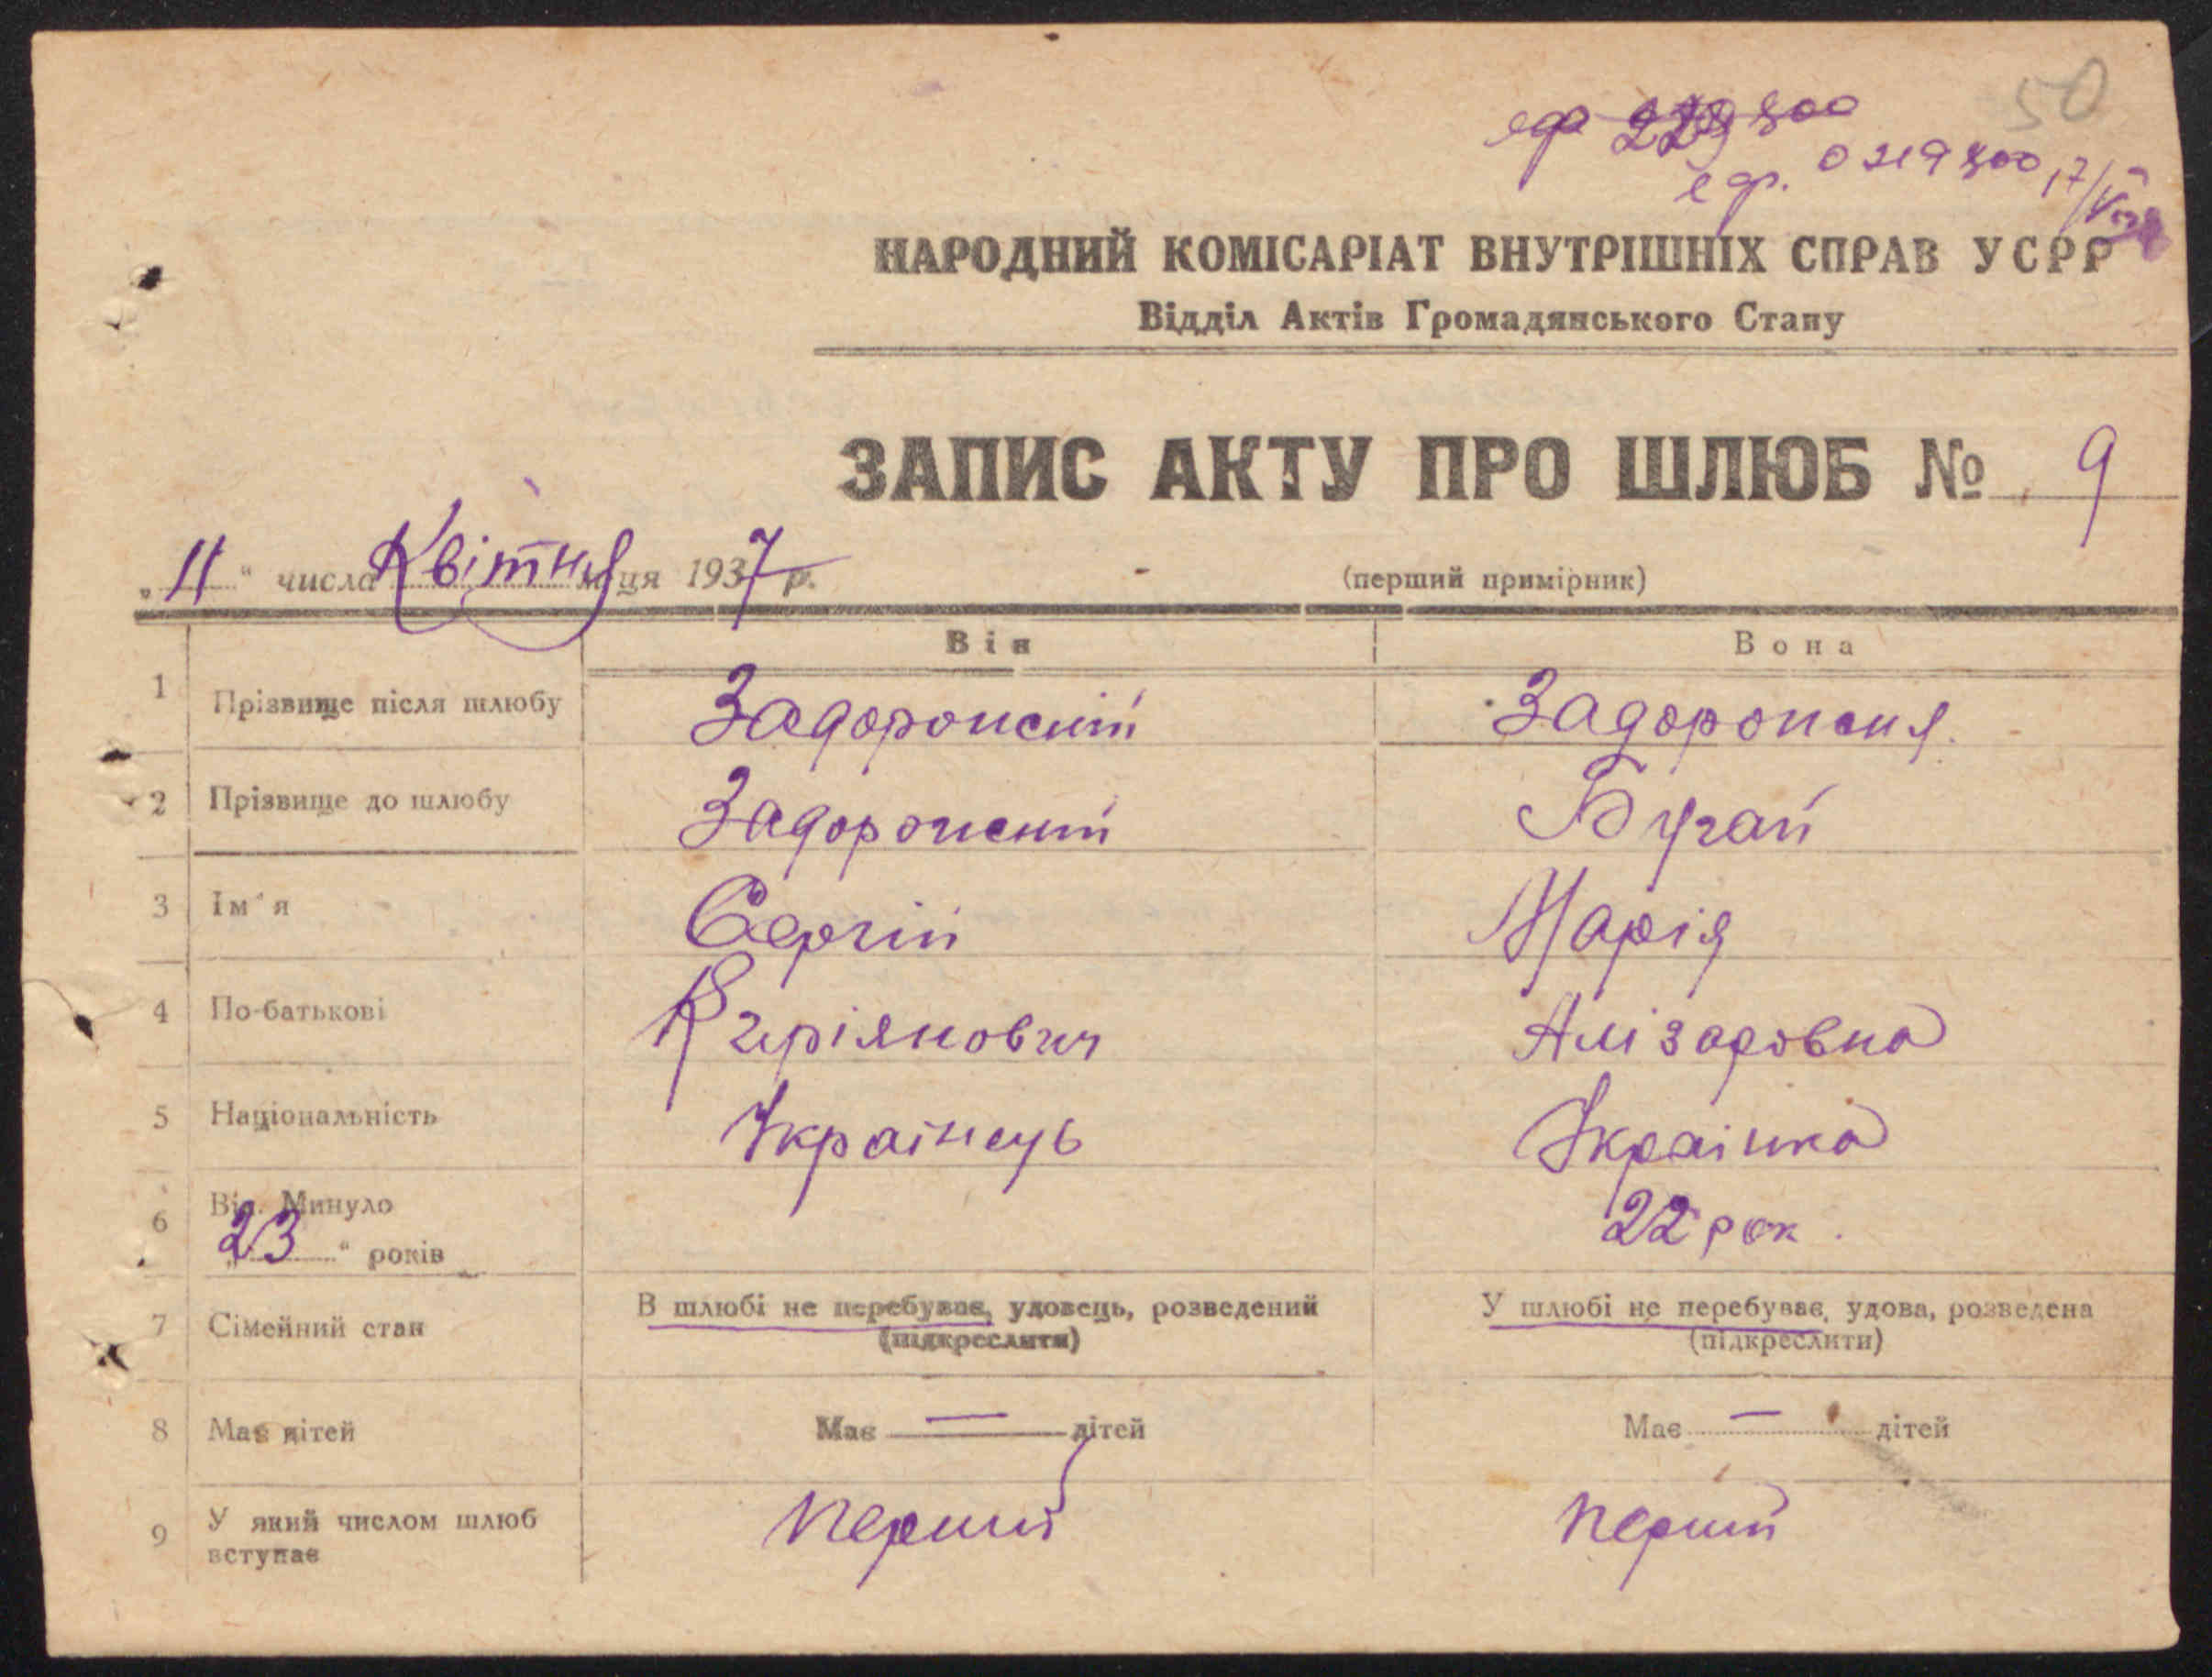 50
еф 229800
еф. 0219800, 17/V
НАРОДНИЙ КОМІСАРІАТ ВНУТРІШНІХ СПРАВ УСРР
Відділ Актів Громадянського Стану
ЗАПИС АКТУ ПРО ШЛЮБ № 9
„11“ числа Квітня м-ця 1937 р.
(перший примірник)
Він Вона
1 Прізвище після шлюбу Задорожній Задорожня.
2 Прізвище до шлюбу Задорожній Бугай
3 Ім'я Сергій Марія
4 По-батькові Купріянович Алізаровна
5 Національність Українець Українка
6 Вік. Минуло
„23“ років 22 рок.
7 Сімейний стан В шлюбі не перебуває, удовець, розведений У шлюбі не перебуває, удова, розведена
(підкреслити) (підкреслити)
8 Має дітей Має — дітей Має — дітей
9 У який числом шлюб перший перший
вступає